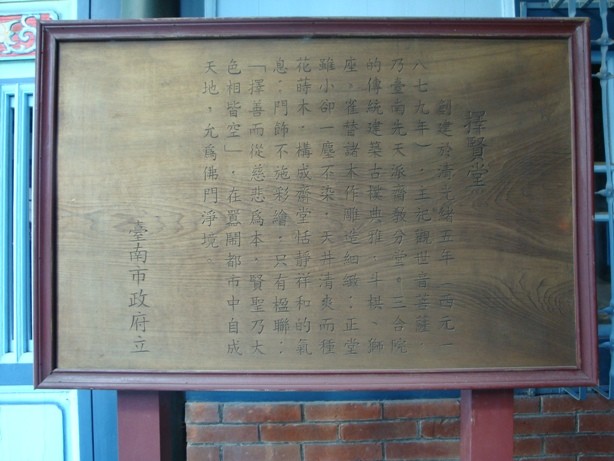 擇賢堂
創建於清光緒五年(西元一
八七九年),主祀觀世音菩薩,
乃臺南先天派齋教分堂。三合院
的傳統建築古樸典雅,斗拱、獅
座、雀替諸木作雕造細緻;正堂
雖小卻一塵不染,天井清爽而種
花蒔木,構成齋堂恬靜祥和的氣
息;門飾不施彩繪,只有楹聯:
「擇善而從慈悲爲本,賢聖乃大
色相皆空」,在囂鬧都市中自成
天地,允爲佛門淨境。
臺南市政府立